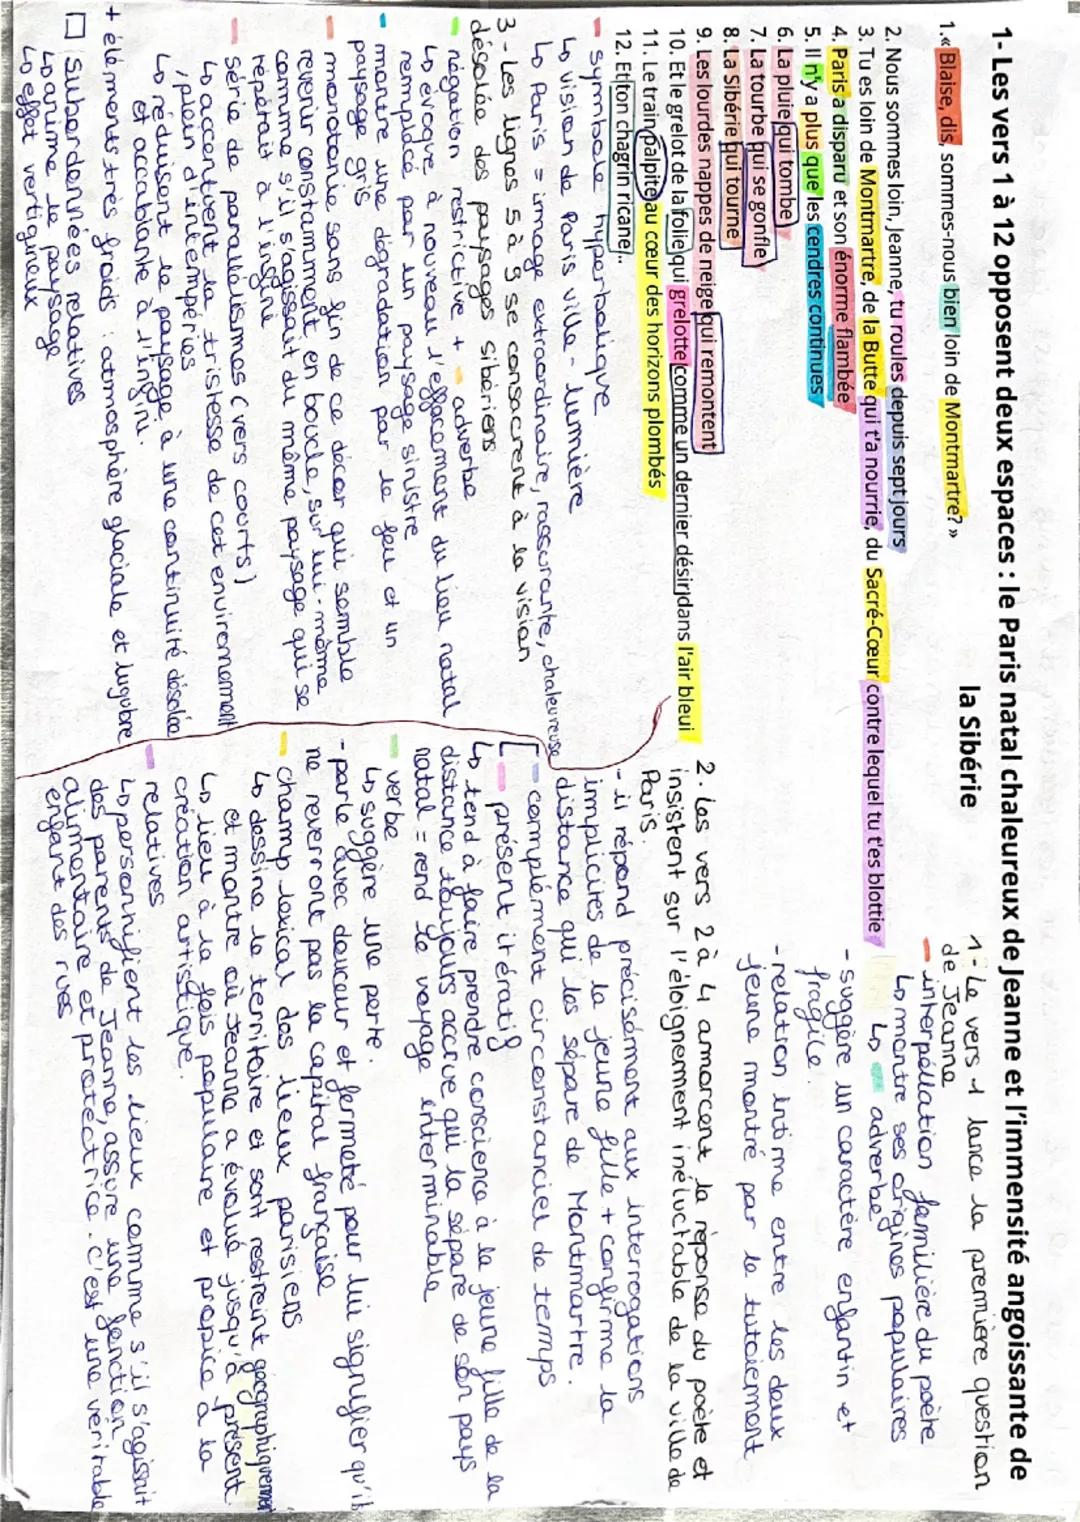 1- Les vers 1 à 12 opposent deux espaces : le Paris natal chaleureux de Jeanne et l'immensité angoissante de
la Sibérie
1.« Blaise, dis, sommes-nous bien loin de Montmartre? »
2. Nous sommes loin, Jeanne, tu roules depuis sept jours
3. Tu es loin de Montmartre, de la Butte qui t'a nourrie, du Sacré-Cœur contre lequel tu t'es blottie
4. Paris a disparu et son énorme flambée
5. Il n'y a plus que les cendres continues
6. La pluie qui tombe
7. La tourbe qui se gonfle
8. La Sibérie qui tourne
9. Les lourdes nappes de neige qui remontent
10. Et le grelot de la folie qui grelotte comme un dernier désir dans l'air bleui
11. Le train palpite au cœur des horizons plombés
12. Et ton chagrin ricane...
1- Le vers 1 lance la première question
de Jeanne
- interpellation familière du poète
↳ montre ses origines populaires
↳ adverbe
- suggère un caractère enfantin et
fragile.
- relation intime entre les deux
jeune montré par le tutoiement
2. Les vers 2 à 4 amorcent la réponse du poète et
insistent sur l'éloignement inéluctable de la ville de
Paris.
- il répond précisément aux interrogations
implicites de la jeune fille + confirme la
distance qui les sépare de Montmartre.
- complément circonstanciel de temps
- présent itératif
↳ tend à faire prendre conscience à la jeune fille de la
distance toujours accrue qui la sépare de son pays
natal = rend le voyage interminable
- verbe
↳ suggère une perte.
- parle avec douceur et fermeté pour lui signifier qu'ils
ne reverront pas la capital française
- champ lexical des lieux parisiens
↳ dessine le territoire ei sont restreint géographiquement
et montre où Jeanne a évolué jusqu'à présent
↳ lieu à la fois populaire et propice à la
création artistique.
- relatives
↳ personnifient les lieux comme s'il s'agissait
des parents de Jeanne, assure une fonction
alimentaire et protectrice. C'est une véritable
enfant des rues
- symbole hyperbolique
↳ vision de Paris ville-lumière
↳ Paris = image extraordinaire, rassurante, chaleureuse
3- Les lignes 5 à 9 se consacrent à la vision
désolée des paysages sibériens
- négation restrictive + - adverbe
↳ évoque à nouveau l'effacement du lieu natal
remplacé par un paysage sinistre
- montre une dégradation par le feu et un
paysage gris
- monotonie sans fin de ce décor qui semble
revenir constamment, en boucle, sur lui-même
comme s'il s'agissait du même paysage qui se
répétait à l'infini
- série de parallélismes (vers courts)
↳ accentuent la tristesse de cet environnement
, plein d'intempéries
↳ réduisent le paysage à une continuité désolée
et accablante à l'infini.
+ éléments très froids : atmosphère glaciale et lugubre
□ subordonnées relatives
↳ anime le paysage
↳ effet vertigineux